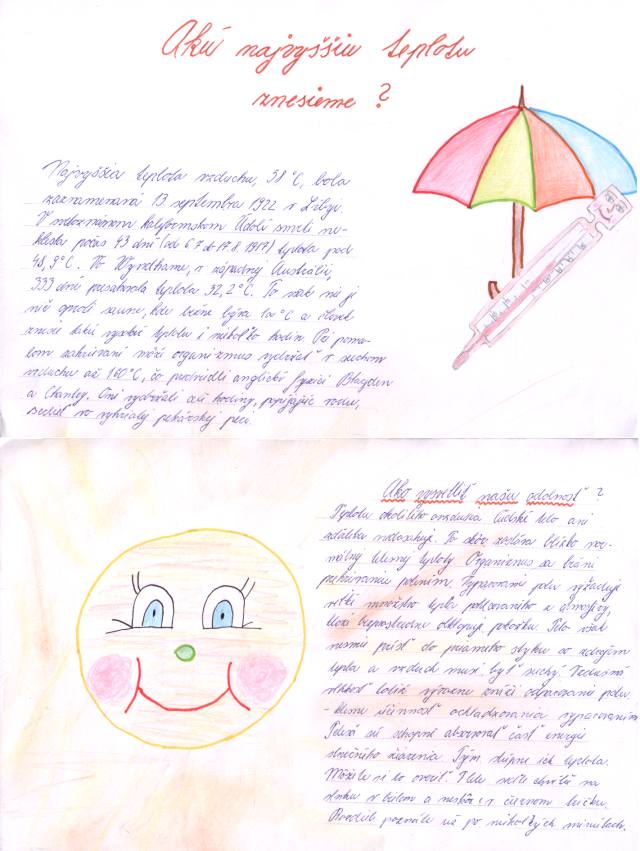 Akú najvyššiu teplotu
znesieme ?
Najvyššia teplota vzduchu, 58 °C, bola
zaznamenaná 13 septembra 1922 v Líbyi.
V neslávnom kalifornskom Údolí smrti ne-
klesla počas 43 dní (od 6.7. do 17.8. 1917) teplota pod
48,9 °C. Vo Wyndhame, v západnej Austrálii,
333 dní presahovala teplota 32,2 °C. To však nie je
nič oproti saune, kde býva a človek
znesie takú vysokú teplotu i niekoľko hodín. Pri poma-
lom zahrievaní môže organizmus vydržať v suchom
vzduchu až 160 °C, čo predviedli anglickí fyzici Blagden
a Chantry. Oni vydržali celé hodiny, popíjajúc vodu,
sedieť vo vyhriatej pekárskej peci.
Ako vysvetliť našu odolnosť ?
Teplotu okolitého ovzdušia ľudské telo ani
zďaleka nedosahuje. To skôr zostáva blízko nor-
málnej telesnej teploty. Organizmus sa bráni
prehrievaniu potením. Vyparovanie potu vyžaduje
veľké množstvo tepla pohlcovaného z atmosféry,
ktorá bezprostredne obklopuje pokožku. Telo však
nesmie prísť do priameho styku so zdrojom
tepla a vzduch musí byť suchý. Vzdušná
vlhkosť totiž výrazne zníži odparovanie potu,
účinnosť ochladzovania vyparovaním.
sú schopné absorbovať časť energie
slnečného žiarenia. Tým stúpne ich teplota.
Môžete si to overiť. v lete chvíľu na
slnku v bielom a neskôr v čiernom tričku.
Rozdiel poznáte už po niekoľkých minútach.